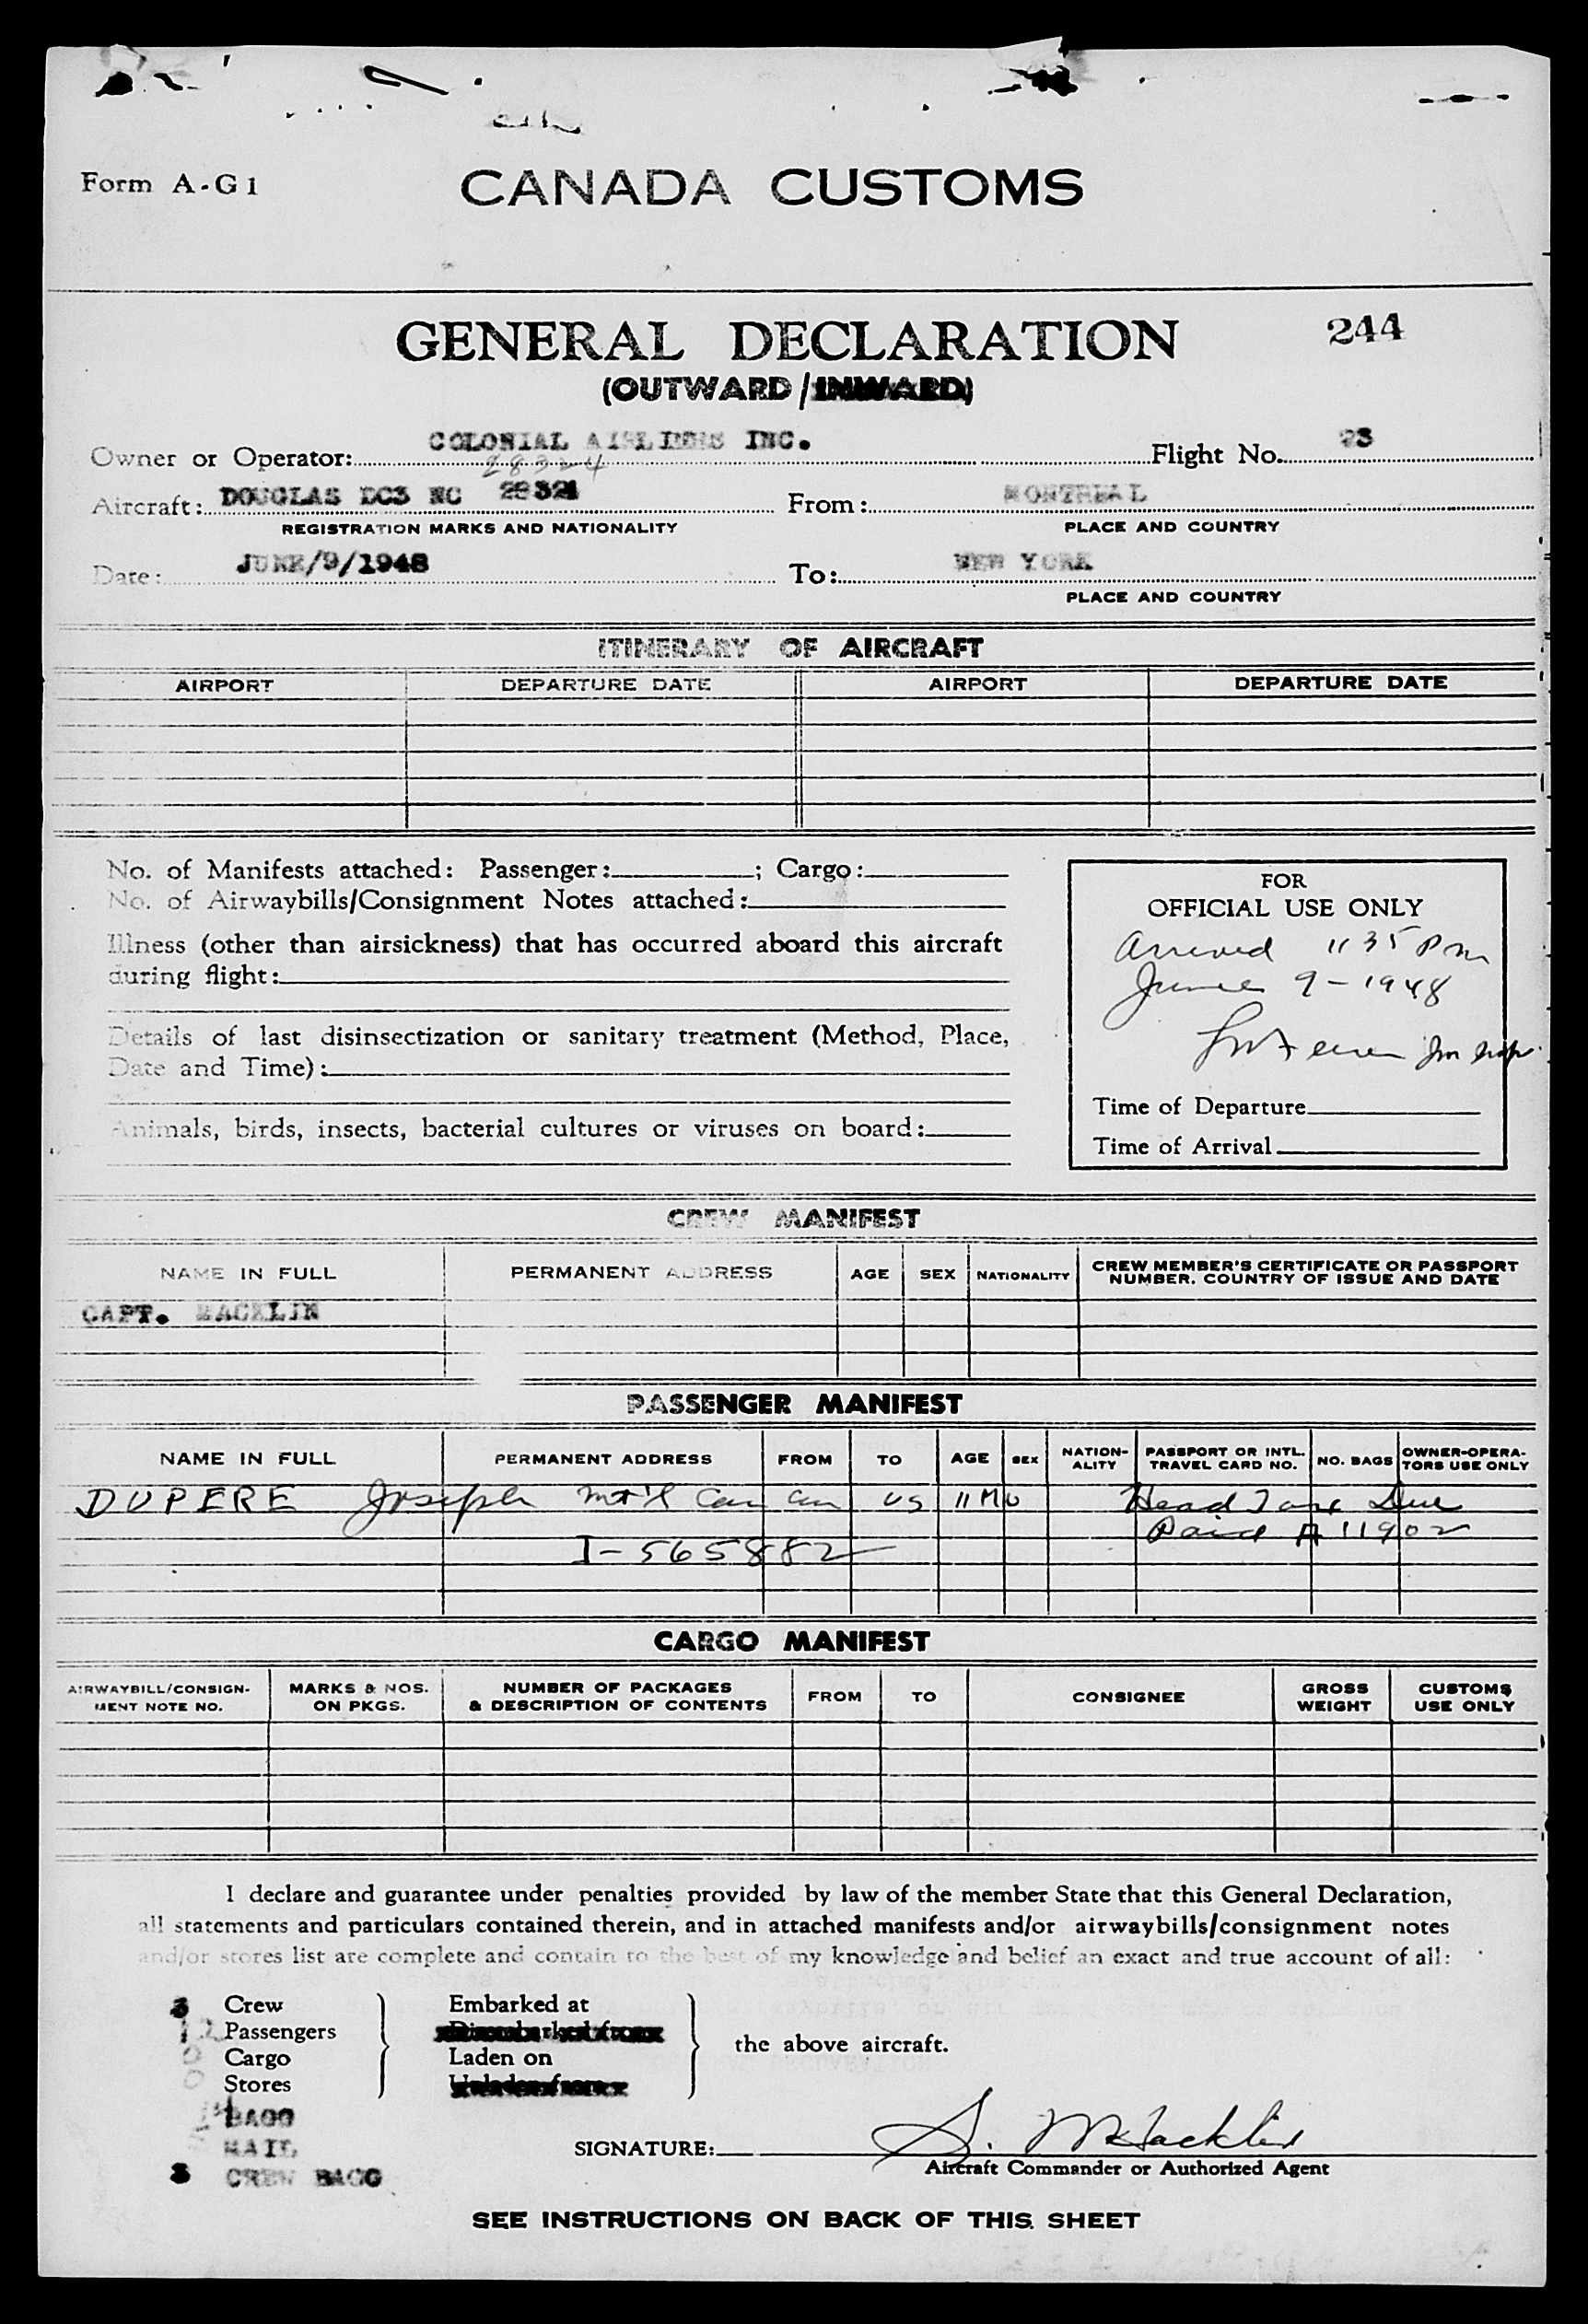 Form A-G1
CANADA CUSTOMS
GENERAL DECLARATION
244
(OUTWARD/INWARD)
Owner or Operator: COLONIAL AIRLINES INC. Flight No. 23
28324
Aircraft: DOUGLAS DC3 NC 28321 From: MONTREAL
REGISTRATION MARKS AND NATIONALITY PLACE AND COUNTRY
Date: JUNE/9/1948 To: NEW YORK
PLACE AND COUNTRY
ITINERARY OF AIRCRAFT
AIRPORT DEPARTURE DATE AIRPORT DEPARTURE DATE
No. of Manifests attached: Passenger: ; Cargo:
No. of Airwaybills/Consignment Notes attached:
Illness (other than airsickness) that has occurred aboard this aircraft
during flight:
Details of last disinsectization or sanitary treatment (Method, Place,
Date and Time):
Animals, birds, insects, bacterial cultures or viruses on board:
FOR
OFFICIAL USE ONLY
Arrived 1135 Pm
June 9-1948
Time of Departure
Time of Arrival
CREW MANIFEST
NAME IN FULL PERMANENT ADDRESS AGE SEX NATIONALITY CREW MEMBER'S CERTIFICATE OR PASSPORT NUMBER, COUNTRY OF ISSUE AND DATE
CAPT. MACKLIN
PASSENGER MANIFEST
NAME IN FULL PERMANENT ADDRESS FROM TO AGE SEX NATION-ALITY PASSPORT OR INTL. TRAVEL CARD NO. NO. BAGS OWNER-OPERA-TORS USE ONLY
DUPERE Joseph Mt'l Can Can US 11 M Head Tax Due
Paid A 11902
I-565882
CARGO MANIFEST
AIRWAYBILL/CONSIGN-MENT NOTE NO. MARKS & NOS. ON PKGS. NUMBER OF PACKAGES & DESCRIPTION OF CONTENTS FROM TO CONSIGNEE GROSS WEIGHT CUSTOMS USE ONLY
I declare and guarantee under penalties provided by law of the member State that this General Declaration,
all statements and particulars contained therein, and in attached manifests and/or airwaybills/consignment notes
and/or stores list are complete and contain to the best of my knowledge and belief an exact and true account of all:
3 Crew Embarked at
12 Passengers
Cargo Laden on
Stores
the above aircraft.
BAGG
MAIL
3 CREW BAGG
SIGNATURE: S. Macklin
Aircraft Commander or Authorized Agent
SEE INSTRUCTIONS ON BACK OF THIS SHEET